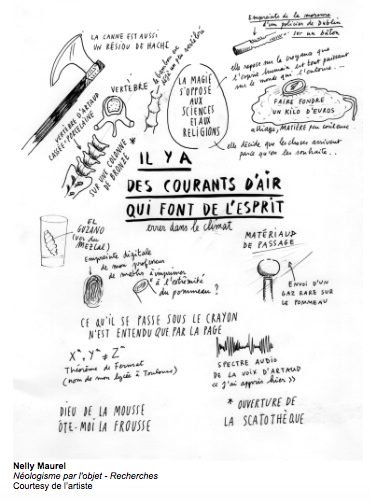 LA CANNE EST AUSSI
UN RÉSIDU DE HACHE
VERTÈBRE D'ARTAUD
CASSÉE-PORCELAINE
VERTÈBRE
le bambou est
déjà un peu vertébré
SUR UNE COLONNE
DE BRONZE *
LA MAGIE
S'OPPOSE
AUX
SCIENCES
ET AUX
RELIGIONS
Empreinte de la morsure
d'un policier de Dublin
sur un bâton
elle repose sur la croyance que
l'esprit humain est tout puissant
sur le monde qui l'entoure.
FAIRE FONDRE
UN KILO D'EUROS
alliage, MATIÈRE peu coûteuse
elle décide que les choses arrivent
parce qu'on les souhaite..
IL Y A
DES COURANTS D'AIR
QUI FONT DE L'ESPRIT
errer dans le climat
EL
GUZANO
(ver du
MEZCAL)
Empreinte digitale
de mon professeur
de maths à imprimer
à l'extrémité
du pommeau ?
MATÉRIAUD
DE PASSAGE
ENVOI D'UN
GAZ RARE SUR
LE POMMEAU
CE QU'IL SE PASSE SOUS LE CRAYON
N'EST ENTENDU QUE PAR LA PAGE
Xⁿ, Yⁿ ≠ Zⁿ
Théorème de Fermat
(nom de mon lycée à Toulouse)
SPECTRE AUDIO
DE LA VOIX D'ARTAUD
« J'ai appris hier »
DIEU DE LA MOUSSE
ÔTE-MOI LA FROUSSE
* OUVERTURE DE
LA SCATOTHÈQUE
Nelly Maurel
Néologisme par l'objet - Recherches
Courtesy de l'artiste